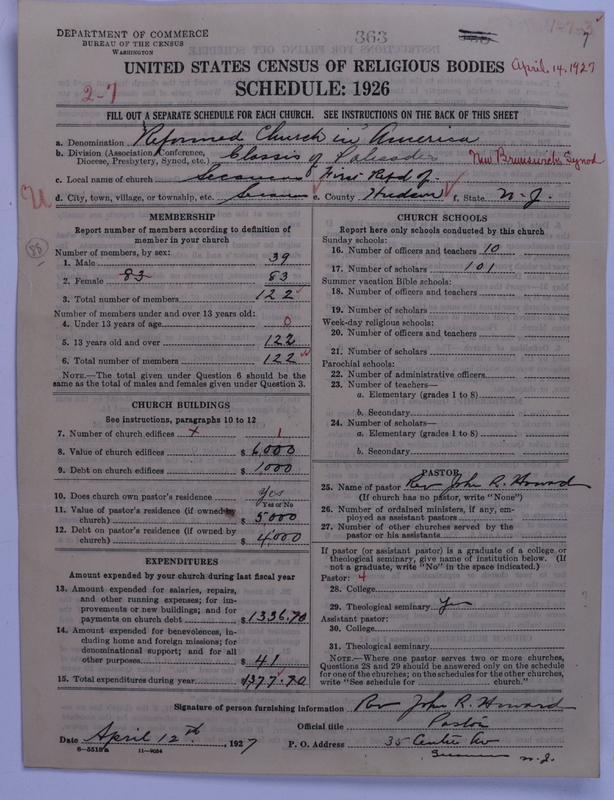 DEPARTMENT OF COMMERCE
BUREAU OF THE CENSUS
WASHINGTON
363
1-7-3
7
April 14, 1927
UNITED STATES CENSUS OF RELIGIOUS BODIES
SCHEDULE: 1926
2-7
FILL OUT A SEPARATE SCHEDULE FOR EACH CHURCH. SEE INSTRUCTIONS ON THE BACK OF THIS SHEET
a. Denomination Reformed Church in America
b. Division (Association, Conference, Diocese, Presbytery, Synod, etc.) Classis of Palisades New Brunswick Synod
c. Local name of church Secaucus First Refd of
d. City, town, village, or township, etc. e. County Hudson f. State N. J.
MEMBERSHIP
Report number of members according to definition of
member in your church
88
Number of members, by sex:
1. Male 39
2. Female 83 83
3. Total number of members 122
Number of members under and over 13 years old:
4. Under 13 years of age 0
5. 13 years old and over 122
6. Total number of members 122
NOTE.—The total given under Question 6 should be the
same as the total of males and females given under Question 3.
CHURCH BUILDINGS
See instructions, paragraphs 10 to 12
7. Number of church edifices 1
8. Value of church edifices $ 6,000
9. Debt on church edifices $ 1000
10. Does church own pastor's residence Yes
Yes or No
11. Value of pastor's residence (if owned by
church) $ 5000
12. Debt on pastor's residence (if owned by
church) $ 4000
EXPENDITURES
Amount expended by your church during last fiscal year
13. Amount expended for salaries, repairs,
and other running expenses; for im-
provements or new buildings; and for
payments on church debt $ 1336.70
14. Amount expended for benevolences, in-
cluding home and foreign missions; for
denominational support; and for all
other purposes $ 41
15. Total expenditures during year $1377.70
CHURCH SCHOOLS
Report here only schools conducted by this church
Sunday schools:
16. Number of officers and teachers 10
17. Number of scholars 101
Summer vacation Bible schools:
18. Number of officers and teachers
19. Number of scholars
Week-day religious schools:
20. Number of officers and teachers
21. Number of scholars
Parochial schools:
22. Number of administrative officers
23. Number of teachers—
a. Elementary (grades 1 to 8)
b. Secondary
24. Number of scholars—
a. Elementary (grades 1 to 8)
b. Secondary
PASTOR
25. Name of pastor Rev John R. Howard
(If church has no pastor, write "None")
26. Number of ordained ministers, if any, em-
ployed as assistant pastors
27. Number of other churches served by the
pastor or his assistants
If pastor (or assistant pastor) is a graduate of a college or
theological seminary, give name of institution below. (If
not a graduate, write "No" in the space indicated.)
Pastor: 4
28. College
29. Theological seminary Yes
Assistant pastor:
30. College
31. Theological seminary
NOTE.—Where one pastor serves two or more churches,
Questions 28 and 29 should be answered only on the schedule
for one of the churches; on the schedules for the other churches,
write "See schedule for church."
Signature of person furnishing information Rev John R. Howard
Official title Pastor
Date April 12th, 1927 P. O. Address 35 Centre Av
N. J.
6—5519a 11—9034